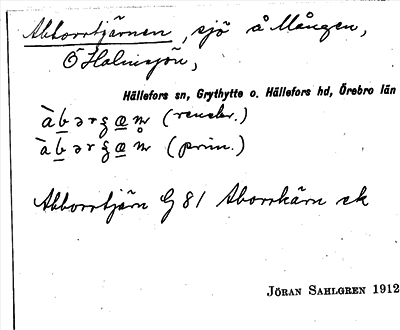 Abborrtjärnen, sjö å Mången,
Ö Halmsjön,
Hällefors sn, Grythytte o. Hällefors hd, Örebro län
(renskr.)
(prim.)
Abborrtjärn G 81 Aborrkärn ek
JÖRAN SAHLGREN 1912